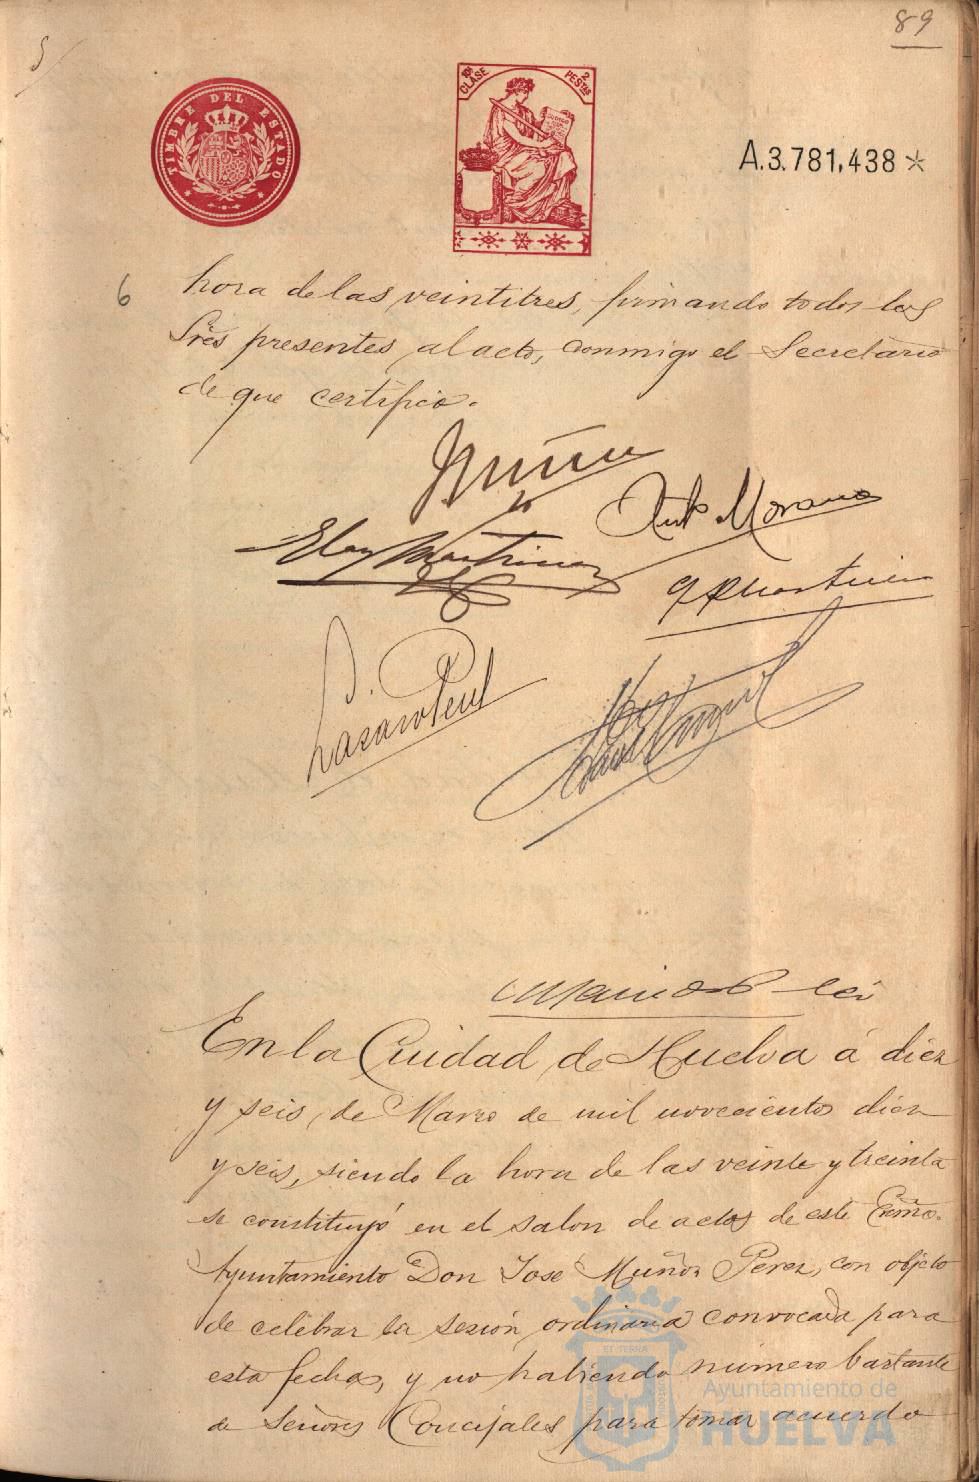 89
TIMBRE DEL ESTADO
10ª CLASE
2 PESTAS
A.3.781,438*
6
hora de las veintitres, firmando todos los
Sres presentes al acto, conmigo el Secretario
de que certifico.
Muñoz
Anto Moreno
Eloy Martinez
Lazaro Perul
En la Ciudad de Huelva á diez
y seis de Marzo de mil novecientos diez
y seis, siendo la hora de las veinte y treinta
se constituyó en el salon de actos de este Excmo.
Ayuntamiento Don José Muñoz Perez, con objeto
de celebrar la sesión ordinaria convocada para
esta fecha, y no habiendo número bastante
de Señores Concejales para tomar acuerdo
Ayuntamiento de
HUELVA